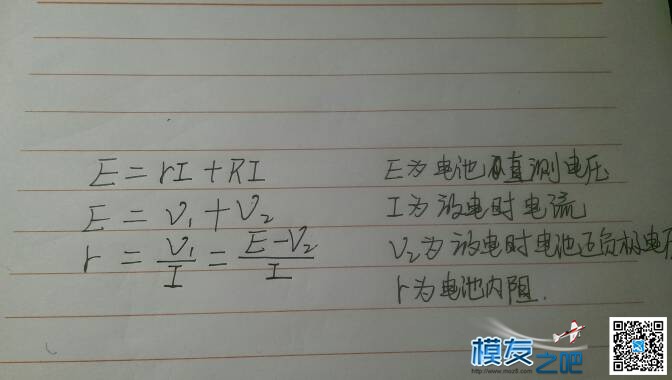 E = rI + RI
E = V₁ + V₂
r = V₁/I = (E-V₂)/I
E为电池直测电压
I为放电时电流
V₂为放电时电池正负极电压
r为电池内阻.
模友之吧
http://www.moz8.com